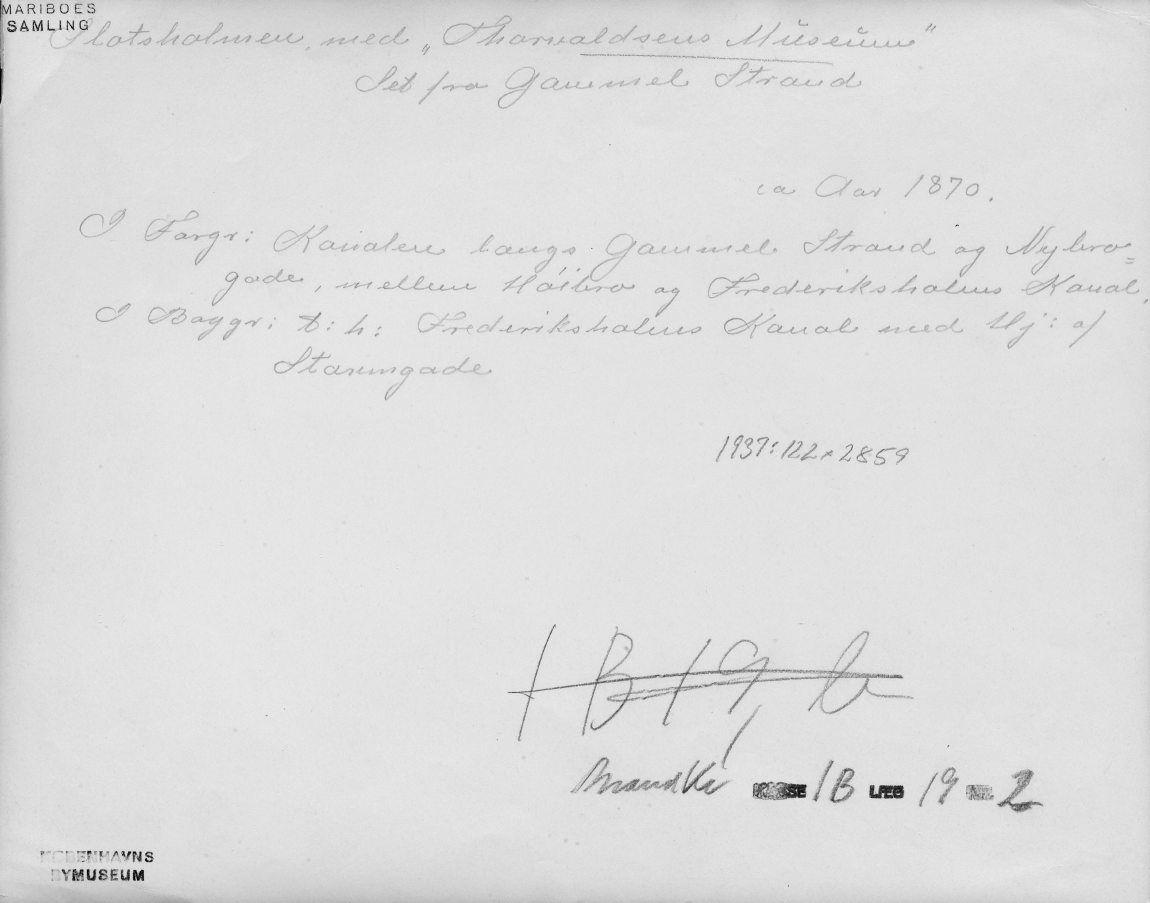 MARIBOES
SAMLING
Slotsholmen, med „Thorvaldsens Museum"
Set fra Gammel Strand
ca Aar 1870.
I Forgr: Kanalen langs Gammel Strand og Nybro=
gade, mellem Höibro og Frederiksholms Kanal.
I Baggr: t: h: Frederiksholms Kanal med Hj: af
Stormgade
1937:122 x 2859
1B 19
1B LÆG 19 2
KØBENHAVNS
BYMUSEUM